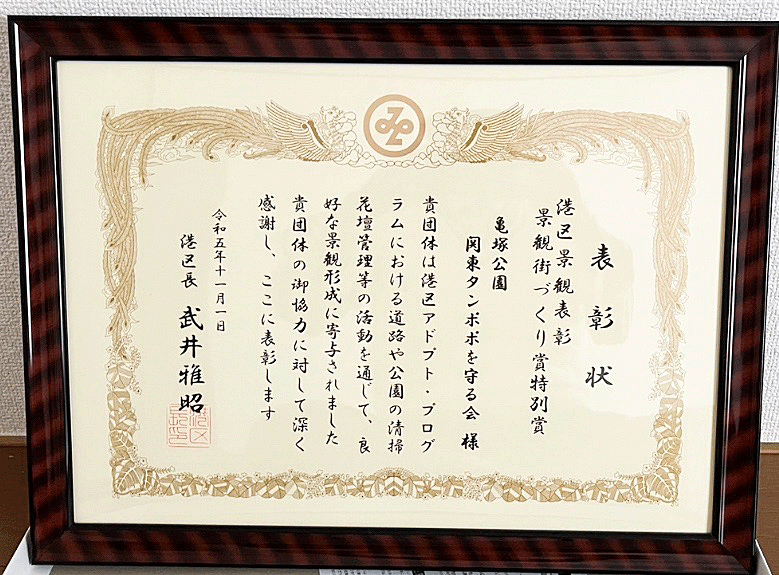 表彰状
港区景観表彰
景観街づくり賞特別賞
亀塚公園
関東タンポポを守る会 様
貴団体は港区アドプト・プログ
ラムにおける道路や公園の清掃
花壇管理等の活動を通じて、良
好な景観形成に寄与されました
貴団体の御協力に対して深く
感謝し、ここに表彰します
令和五年十一月一日
港区長 武井雅昭